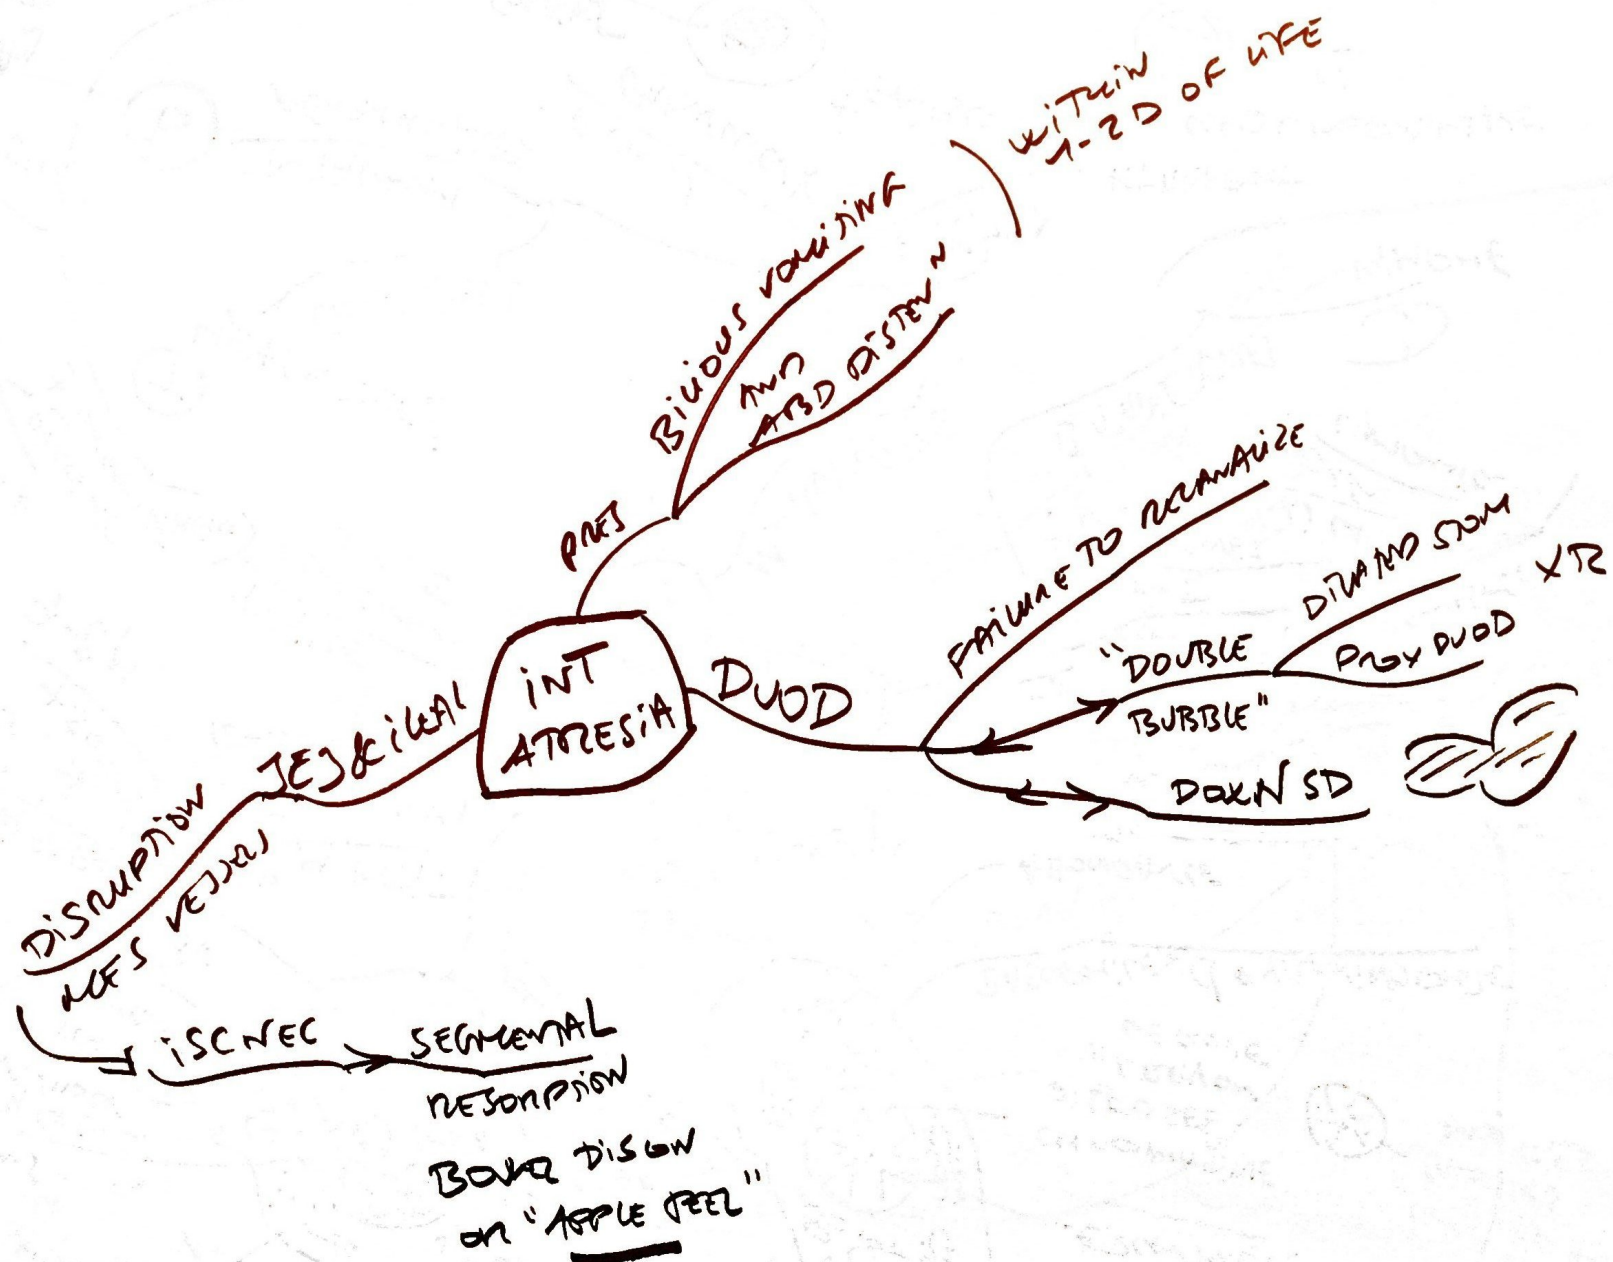 INT
ATRESIA
PRES
BILIOUS VOMITING
AND
ABD DISTEN"N
WITHIN
1-2D OF LIFE
DUOD
FAILURE TO RECANALIZE
"DOUBLE
BUBBLE"
DILATED STOM
PROX DUOD
XR
DOWN SD
JEJ & ILEAL
DISRUPTION
MES VESSELS
ISC NEC
SEGMENTAL
RESORPTION
BOWEL DISCON
OR "APPLE PEEL"